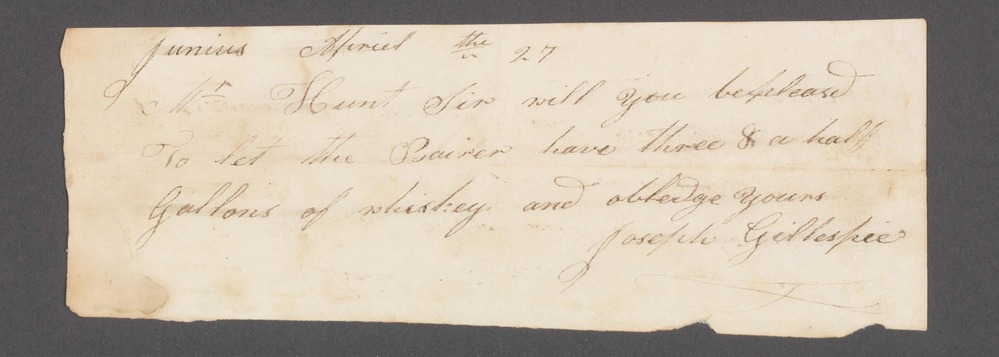 Junius Apriel the 27
Mr Hunt Sir will you be pleasd
To let the Bairer have three & a half
Gallons of whiskey and obledge yours
Joseph Gillespie